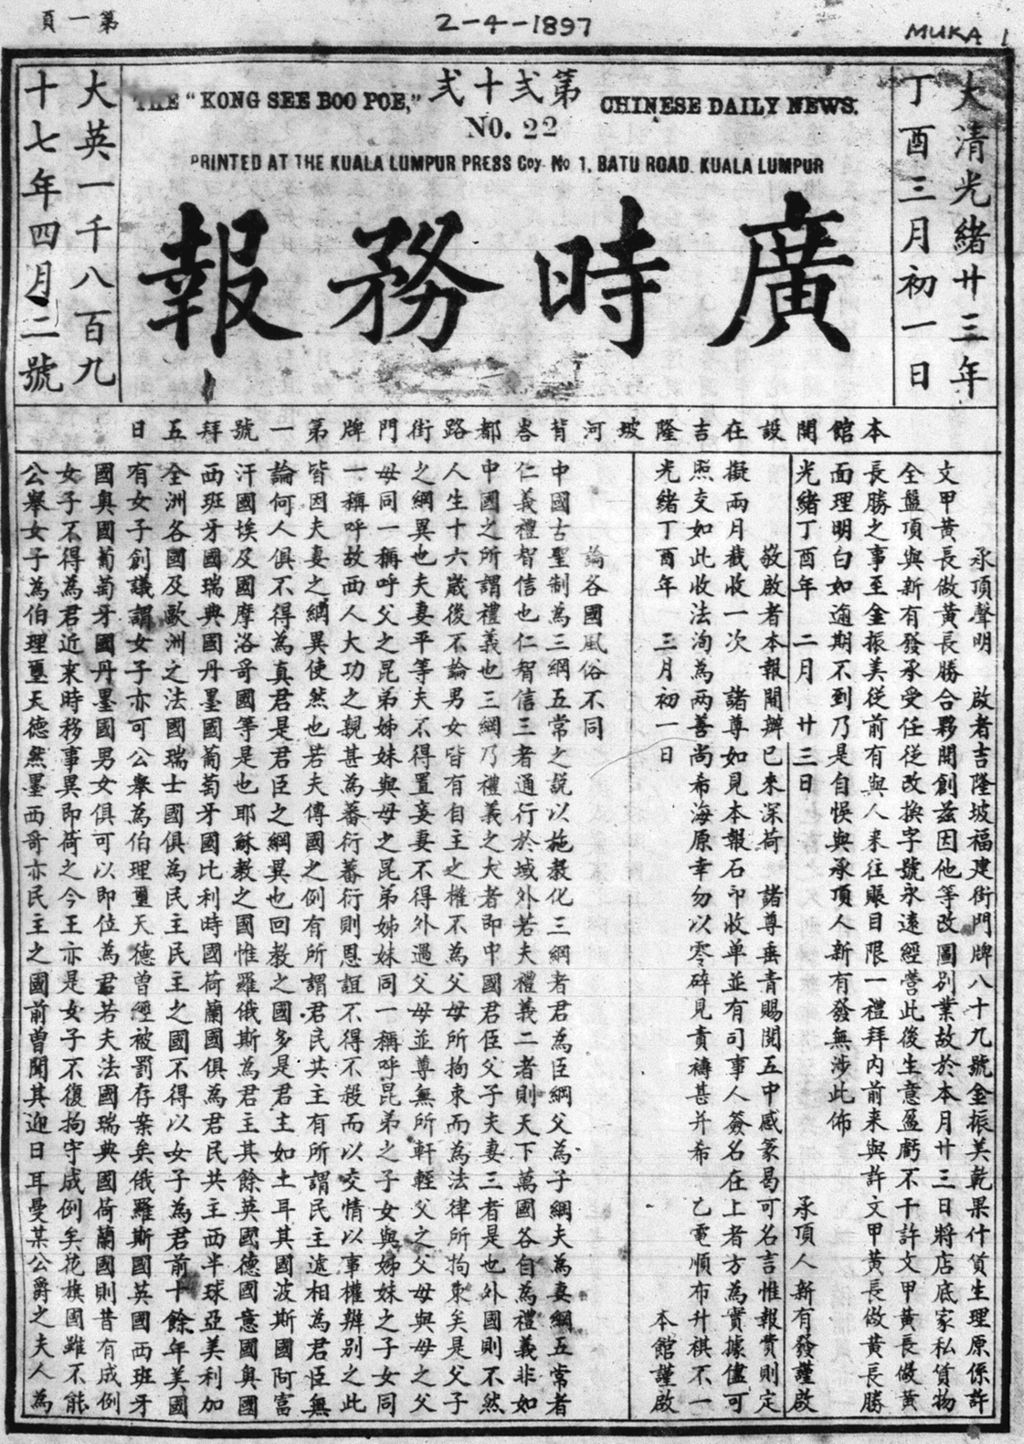 第一頁
2-4-1897
MUKA 1
大清光緒廿三年
丁酉三月初一日
第弍十弍
THE "KONG SEE BOO POE," CHINESE DAILY NEWS.
NO. 22
PRINTED AT THE KUALA LUMPUR PRESS Coy. No 1, BATU ROAD. KUALA LUMPUR
廣時務報
大英一千八百九
十七年四月二號
本館開設在吉隆坡河背峇都路街門牌第一號拜五日
承頂聲明 啟者吉隆坡福建街門牌八十九號金振美乾果什貨生理原係許
文甲黃長做黃長勝合夥開創茲因他等改圖別業故於本月廿三日將店底家私貨物
全盤頂與新有發承受任從改換字號永遠經營此後生意盈虧不干許文甲黃長做黃
長勝之事至金振美從前有與人來往賬目限一禮拜內前來與許文甲黃長做黃長勝
面理明白如逾期不到乃是自悞與承頂人新有發無涉此佈
光緒丁酉年 二月 廿三日 承頂人新有發謹啟
敬啟者本報開辦已來深荷 諸尊垂青賜閱五中感篆曷可名言惟報費則定
擬兩月截收一次 諸尊如見本報石印收单並有司事人簽名在上者方為實據儘可
照交如此收法洵為兩善尚希海原幸勿以零碎見責禱甚幷希 乙電順布升祺不一
光緒丁酉年 三月初一日 本館謹啟
論各國風俗不同
中國古聖制為三綱五常之說以施教化三綱者君為臣綱父為子綱夫為妻綱五常者
仁義禮智信也仁智信三者通行於域外若夫禮義二者則天下萬國各自為禮義非如
中國之所謂禮義也三綱乃禮義之大者即中國君臣父子夫妻三者是也外國則不然
人生十六歲後不論男女皆有自主之權不為父母所拘束而為法律所拘束矣是父子
之綱異也夫妻平等夫不得置妾妻不得外遇父母並尊無所軒輊父之父母與母之父
母同一稱呼父之昆弟姊妹與母之昆弟姊妹同一稱呼昆弟之子女與姊妹之子女同
一稱呼故西人大功之親甚為蕃衍蕃衍則恩誼不得不殺而以交情以事權辨别之此
皆因夫妻之綱異使然也若夫傳國之例有所謂君民共主有所謂民主遞相為君臣無
論何人俱不得為真君是君臣之綱異也回教之國多是君主如土耳其國波斯國阿富
汗國埃及國摩洛哥國等是也耶穌教之國惟羅俄斯為君主其餘英國德國意國奧國
西班牙國瑞典國丹墨國葡萄牙國比利時國荷蘭國俱為君民共主西半球亞美利加
全洲各國及歐洲之法國瑞士國俱為民主民主之國不得以女子為君前十餘年美國
有女子創議謂女子亦可公舉為伯理璽天德曾經被罰存案矣俄羅斯國英國西班牙
國奧國葡萄牙國丹墨國男女俱可以即位為君若夫法國瑞典國荷蘭國則昔有成例
女子不得為君近來時移事異即荷之今王亦是女子不復拘守成例矣花旗國雖不能
公舉女子為伯理璽天德然墨西哥亦民主之國前曾聞其迎日耳曼某公爵之夫人為